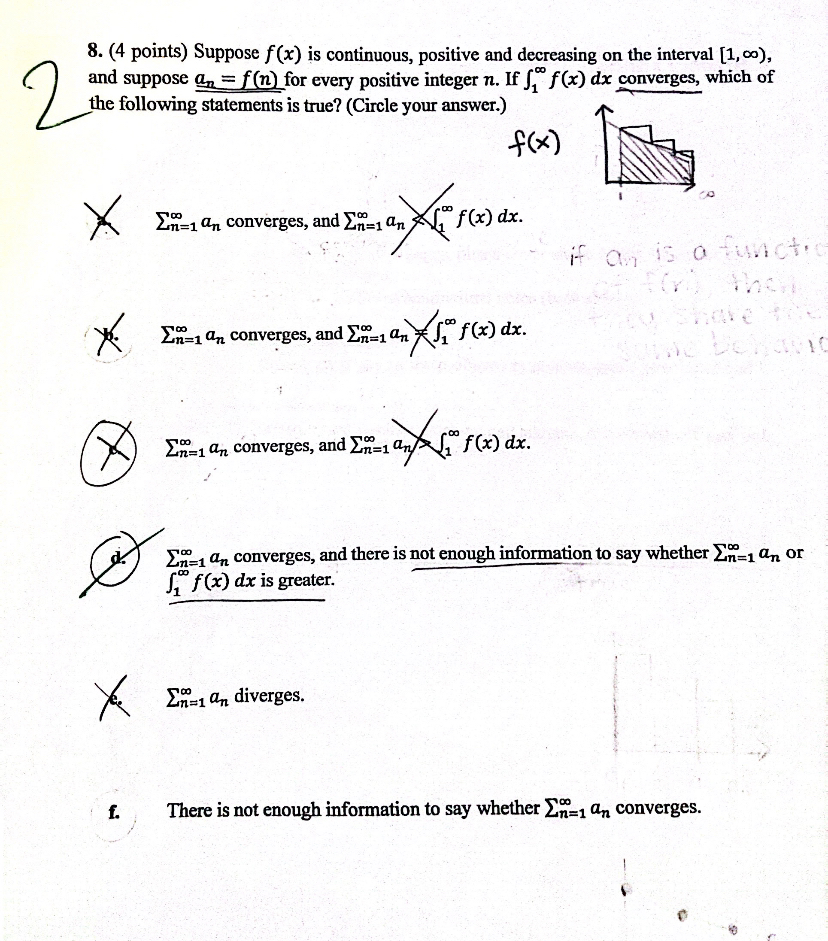 8. (4 points) Suppose f(x) is continuous, positive and decreasing on the interval [1,∞),
2 and suppose aₙ = f(n) for every positive integer n. If ∫₁^∞ f(x) dx converges, which of
the following statements is true? (Circle your answer.)
f(x)
1 ∞
Σₙ₌₁^∞ aₙ converges, and Σₙ₌₁^∞ aₙ < ∫₁^∞ f(x) dx.
if an is a functio
of f(n), then
they share the
same behavio
b. Σₙ₌₁^∞ aₙ converges, and Σₙ₌₁^∞ aₙ = ∫₁^∞ f(x) dx.
Σₙ₌₁^∞ aₙ converges, and Σₙ₌₁^∞ aₙ > ∫₁^∞ f(x) dx.
d. Σₙ₌₁^∞ aₙ converges, and there is not enough information to say whether Σₙ₌₁^∞ aₙ or
∫₁^∞ f(x) dx is greater.
e. Σₙ₌₁^∞ aₙ diverges.
f. There is not enough information to say whether Σₙ₌₁^∞ aₙ converges.